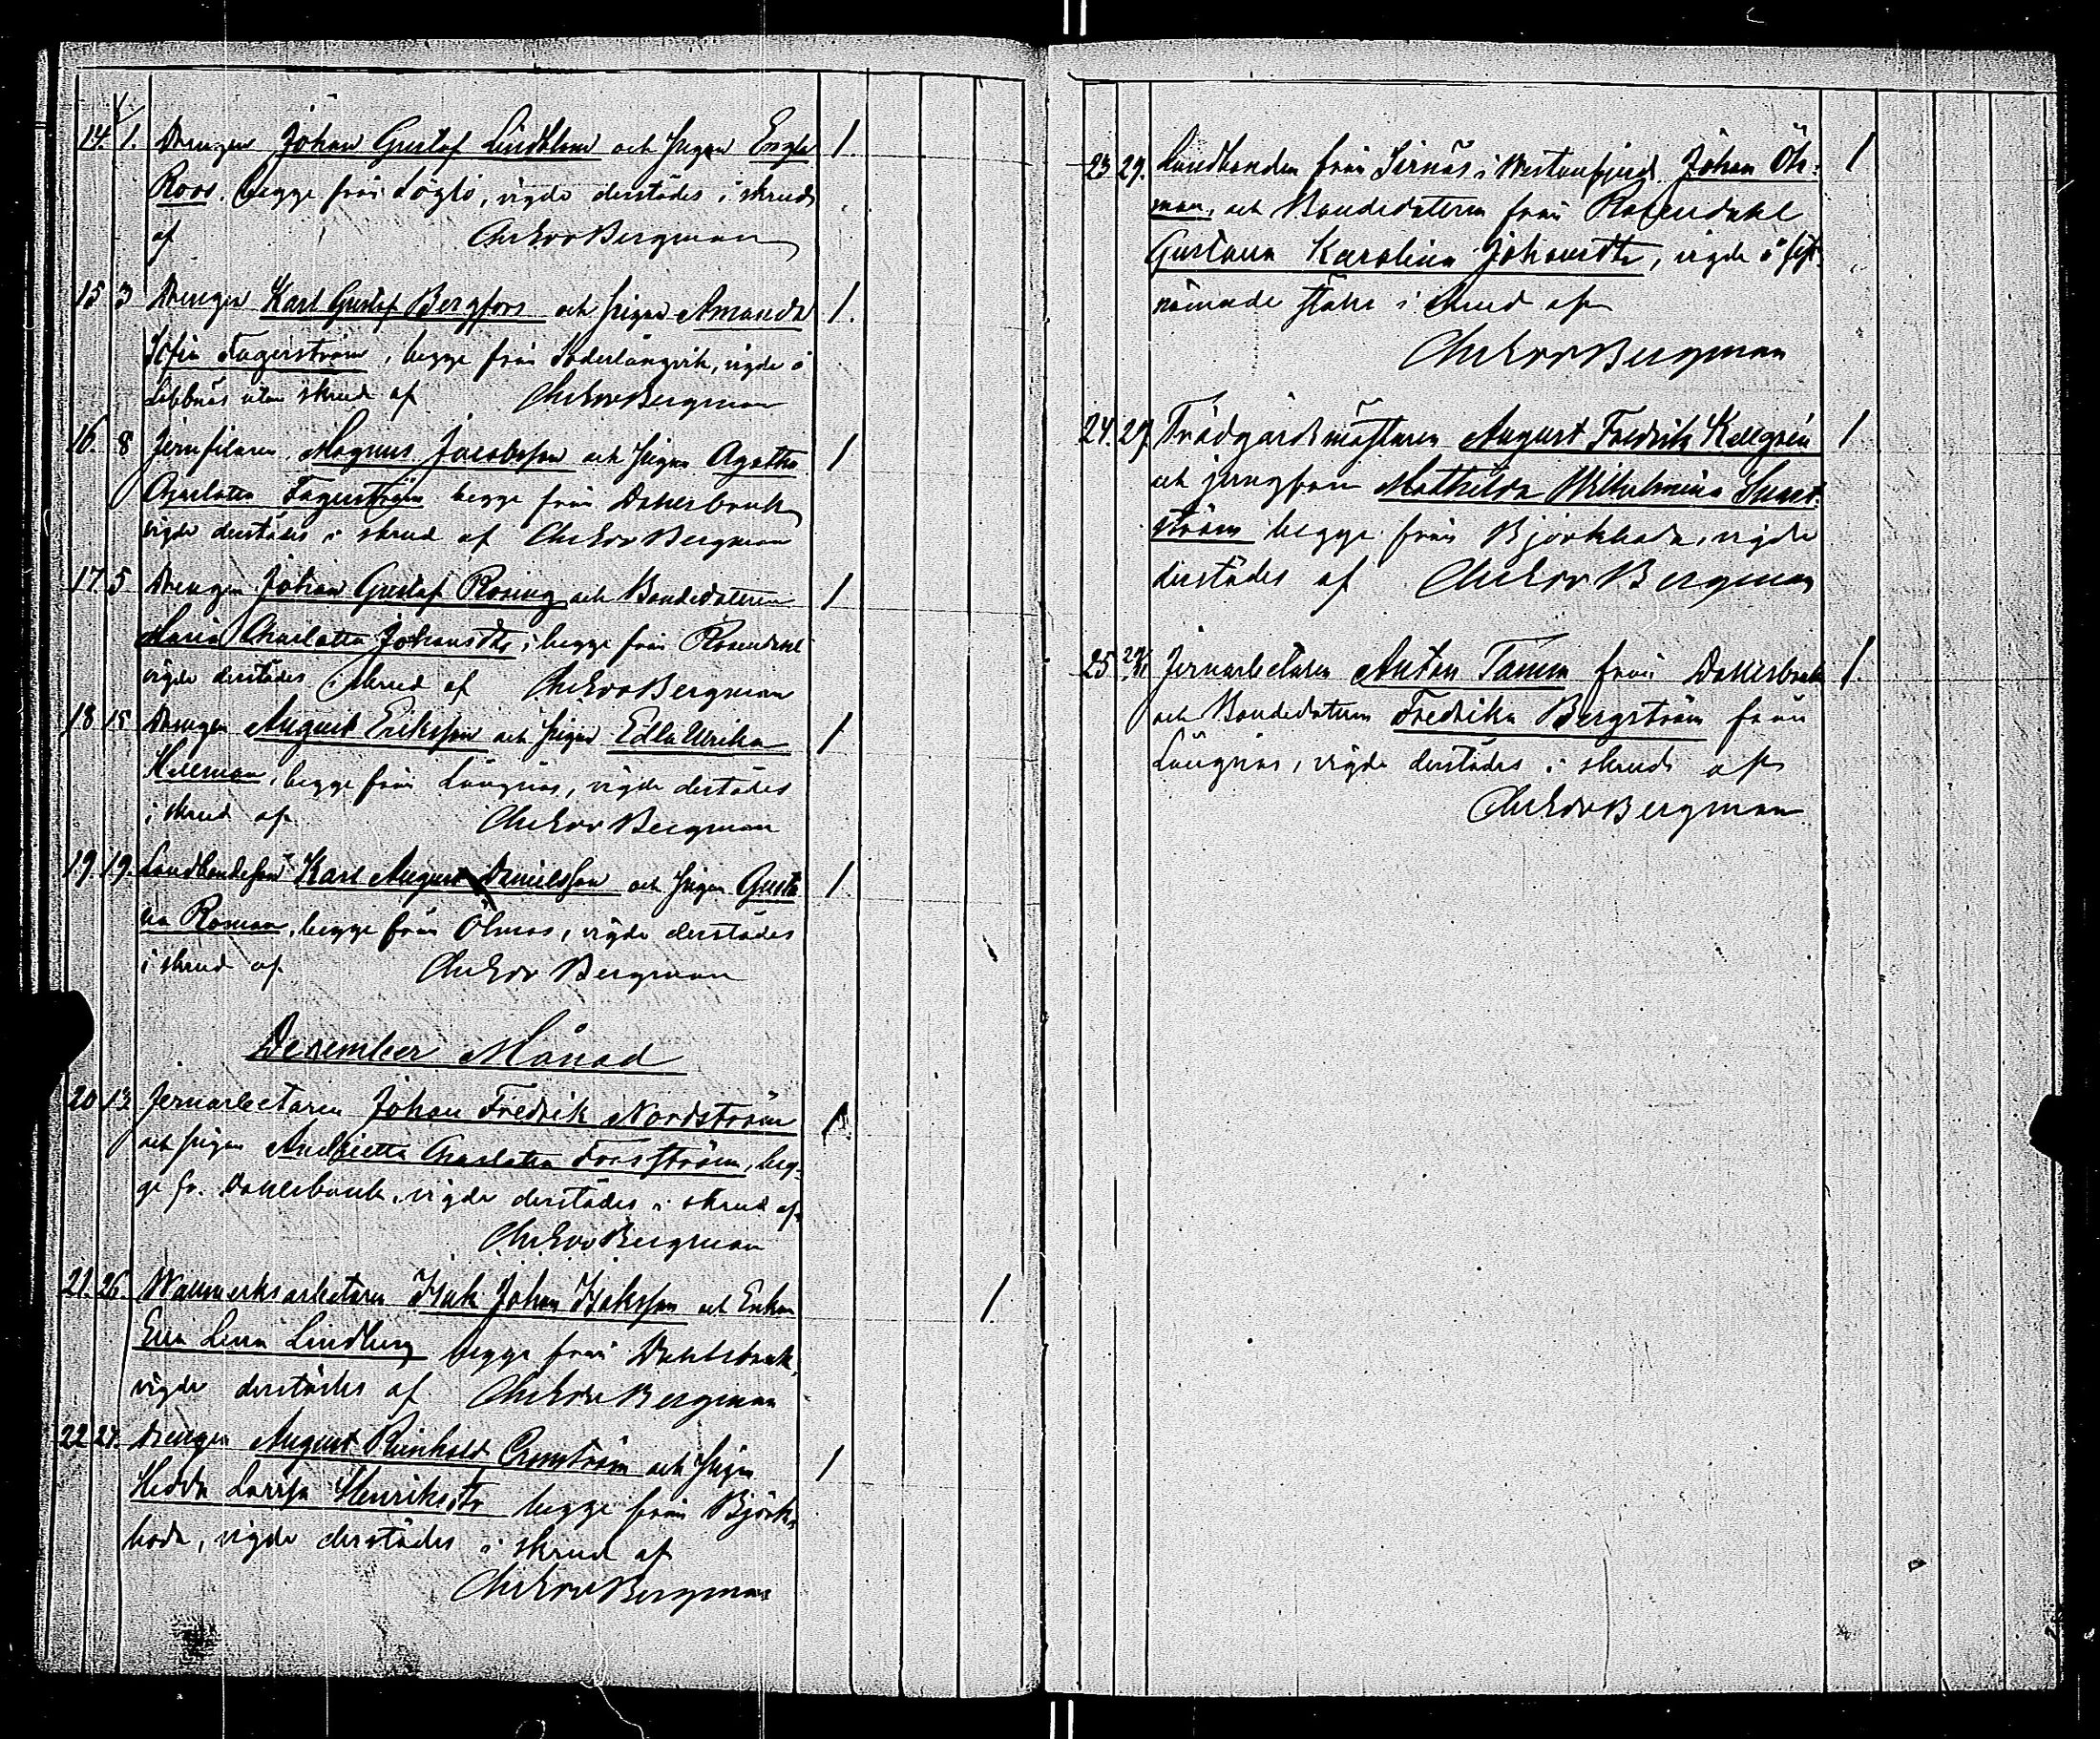 14. 1. Drengen Johan Gustaf Lindblom och Pigan Engla 1.
Roos, begge från Löglö, vigde derstädes i skrud
af Chr Edv Bergman
15 3 Drengen Karl Gustaf Bergfors och Pigan Amanda 1.
Sofia Fagerström, begge från Söderlångvik, vigde å
Labbnäs utan skrud af Chr Edv Bergman
16. 8 Jernfilaren Magnus Jacobsson och Pigan Agatha 1
Charlotta Fagerström begge från Dalsbruk
vigde derstädes i skrud af Chr Edv Bergman
17. 5 Drengen Johan Gustaf Rosing och Bondedottren 1
Maria Charlotta Johansdtr, begge från Rosendal
vigde derstädes i skrud af Chr Edv Bergman
18 15 Drengen August Eriksson och Pigan Edla Ulrika 1
Hellman, begge från Långnäs, vigde derstädes
i skrud af Chr Edv Bergman
19. 19. Landbondeson Karl August Danielsson och Pigan Gusta 1.
va Roman, begge från Ölmos, vigde derstädes
i skrud af Chr Edv Bergman
December Månad
20 13 Jernarbetaren Johan Fredrik Nordström 1.
och Pigan Andrietta Charlotta Forsström, beg-
ge fr. Dalsbruk, vigde derstädes i skrud af
Chr Edv Bergman
21. 26 Wallmerksarbetaren Isak Johan Isaksson och Enkan 1.
Eva Lena Lindberg begge från Dahlsbruk,
vigde derstädes af Chr Edv Bergman
22 27. Drengen August Reinhold Cronström och Pigan 1
Hedda Lovisa Henriksdtr begge från Björk-
boda, vigde derstädes i skrud af
Chr Edv Bergman
23 29. Landbonden från Sirnäs i Westanfjerd Johan Öh- 1
man, och Bondedottren från Rosendahl
Gustava Karolina Johansdtr, vigde å sist-
nämnde ställe i skrud af
Chr Edv Bergman
24. 29. Trädgårdsmästaren August Fredrik Kellgrén 1
och jungfrun Mathilda Wilhelmina Sund-
ström begge från Björkboda, vigde
derstädes af Chr Edv Bergman
25 Jernarbetaren Anton Tamm från Dalsbruk 1.
och Bondedottren Fredrika Bergström från
Långnäs, vigde derstädes i skrud af
Chr Edv Bergman